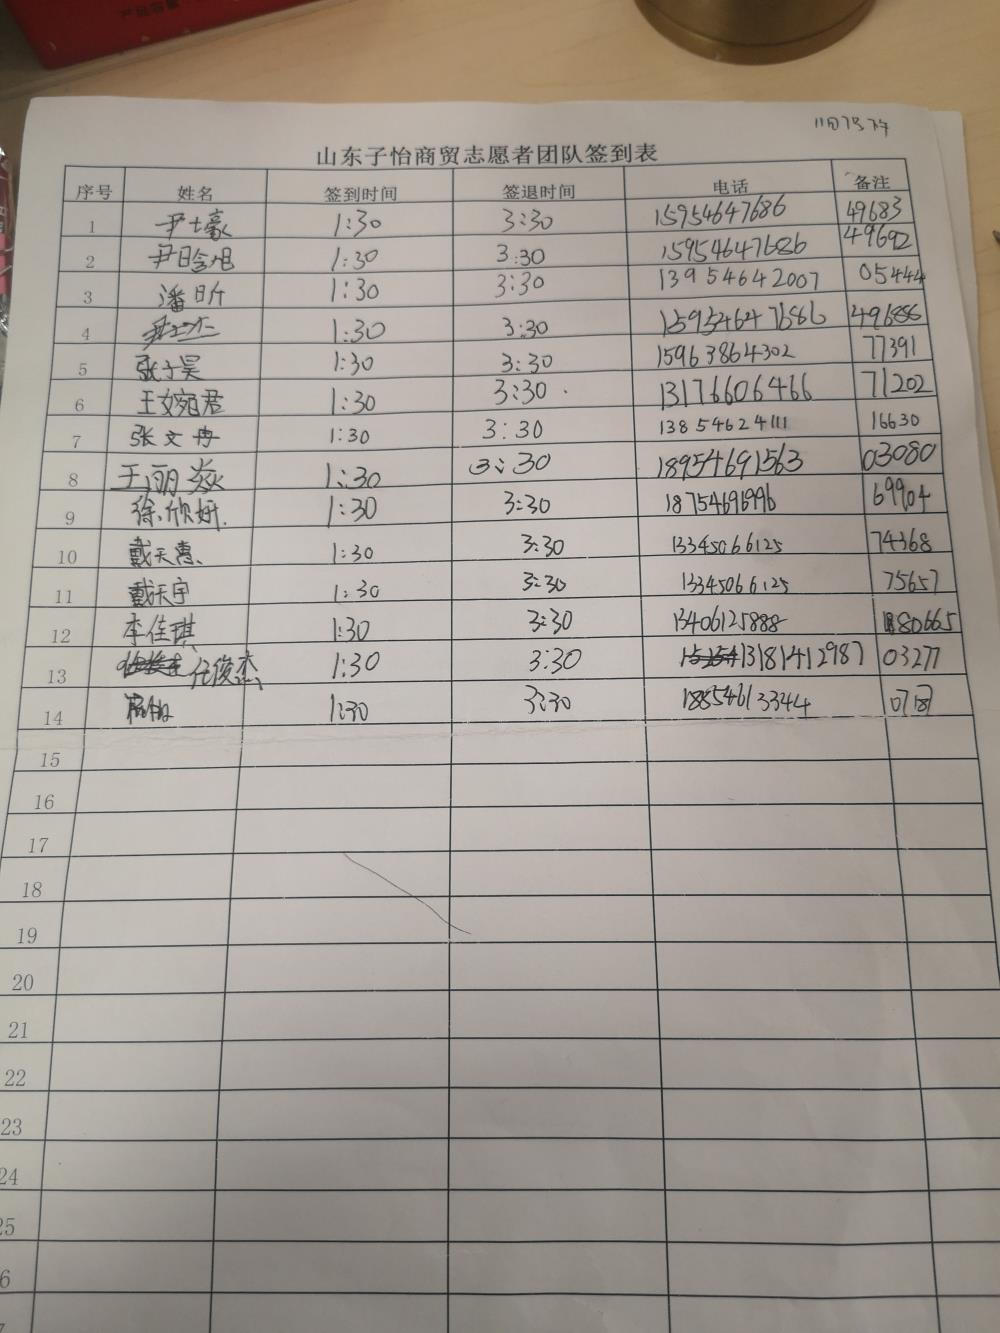 山东子怡商贸志愿者团队签到表
序号 姓名 签到时间 签退时间 电话 备注
1 尹士豪 1:30 3:30 15954647686 49683
2 尹晗旭 1:30 3:30 15954647686 49692
3 潘昕 1:30 3:30 13954642007 05444
4 1:30 3:30 15954647686 49686
5 张子昊 1:30 3:30 15963864302 77391
6 王婉君 1:30 3:30 13176606466 71202
7 张文冉 1:30 3:30 13854624111 16630
8 王丽焱 1:30 3:30 18954691563 03080
9 徐欣妍 1:30 3:30 18754696996 69904
10 戴天惠 1:30 3:30 13345066125 74368
11 戴天宇 1:30 3:30 13345066125 75657
12 李佳琪 1:30 3:30 13406125888 80665
13 任俊杰 1:30 3:30 13181412987 03277
14 1:30 3:30 18854613344
15
16
17
18
19
20
21
22
23
24
25